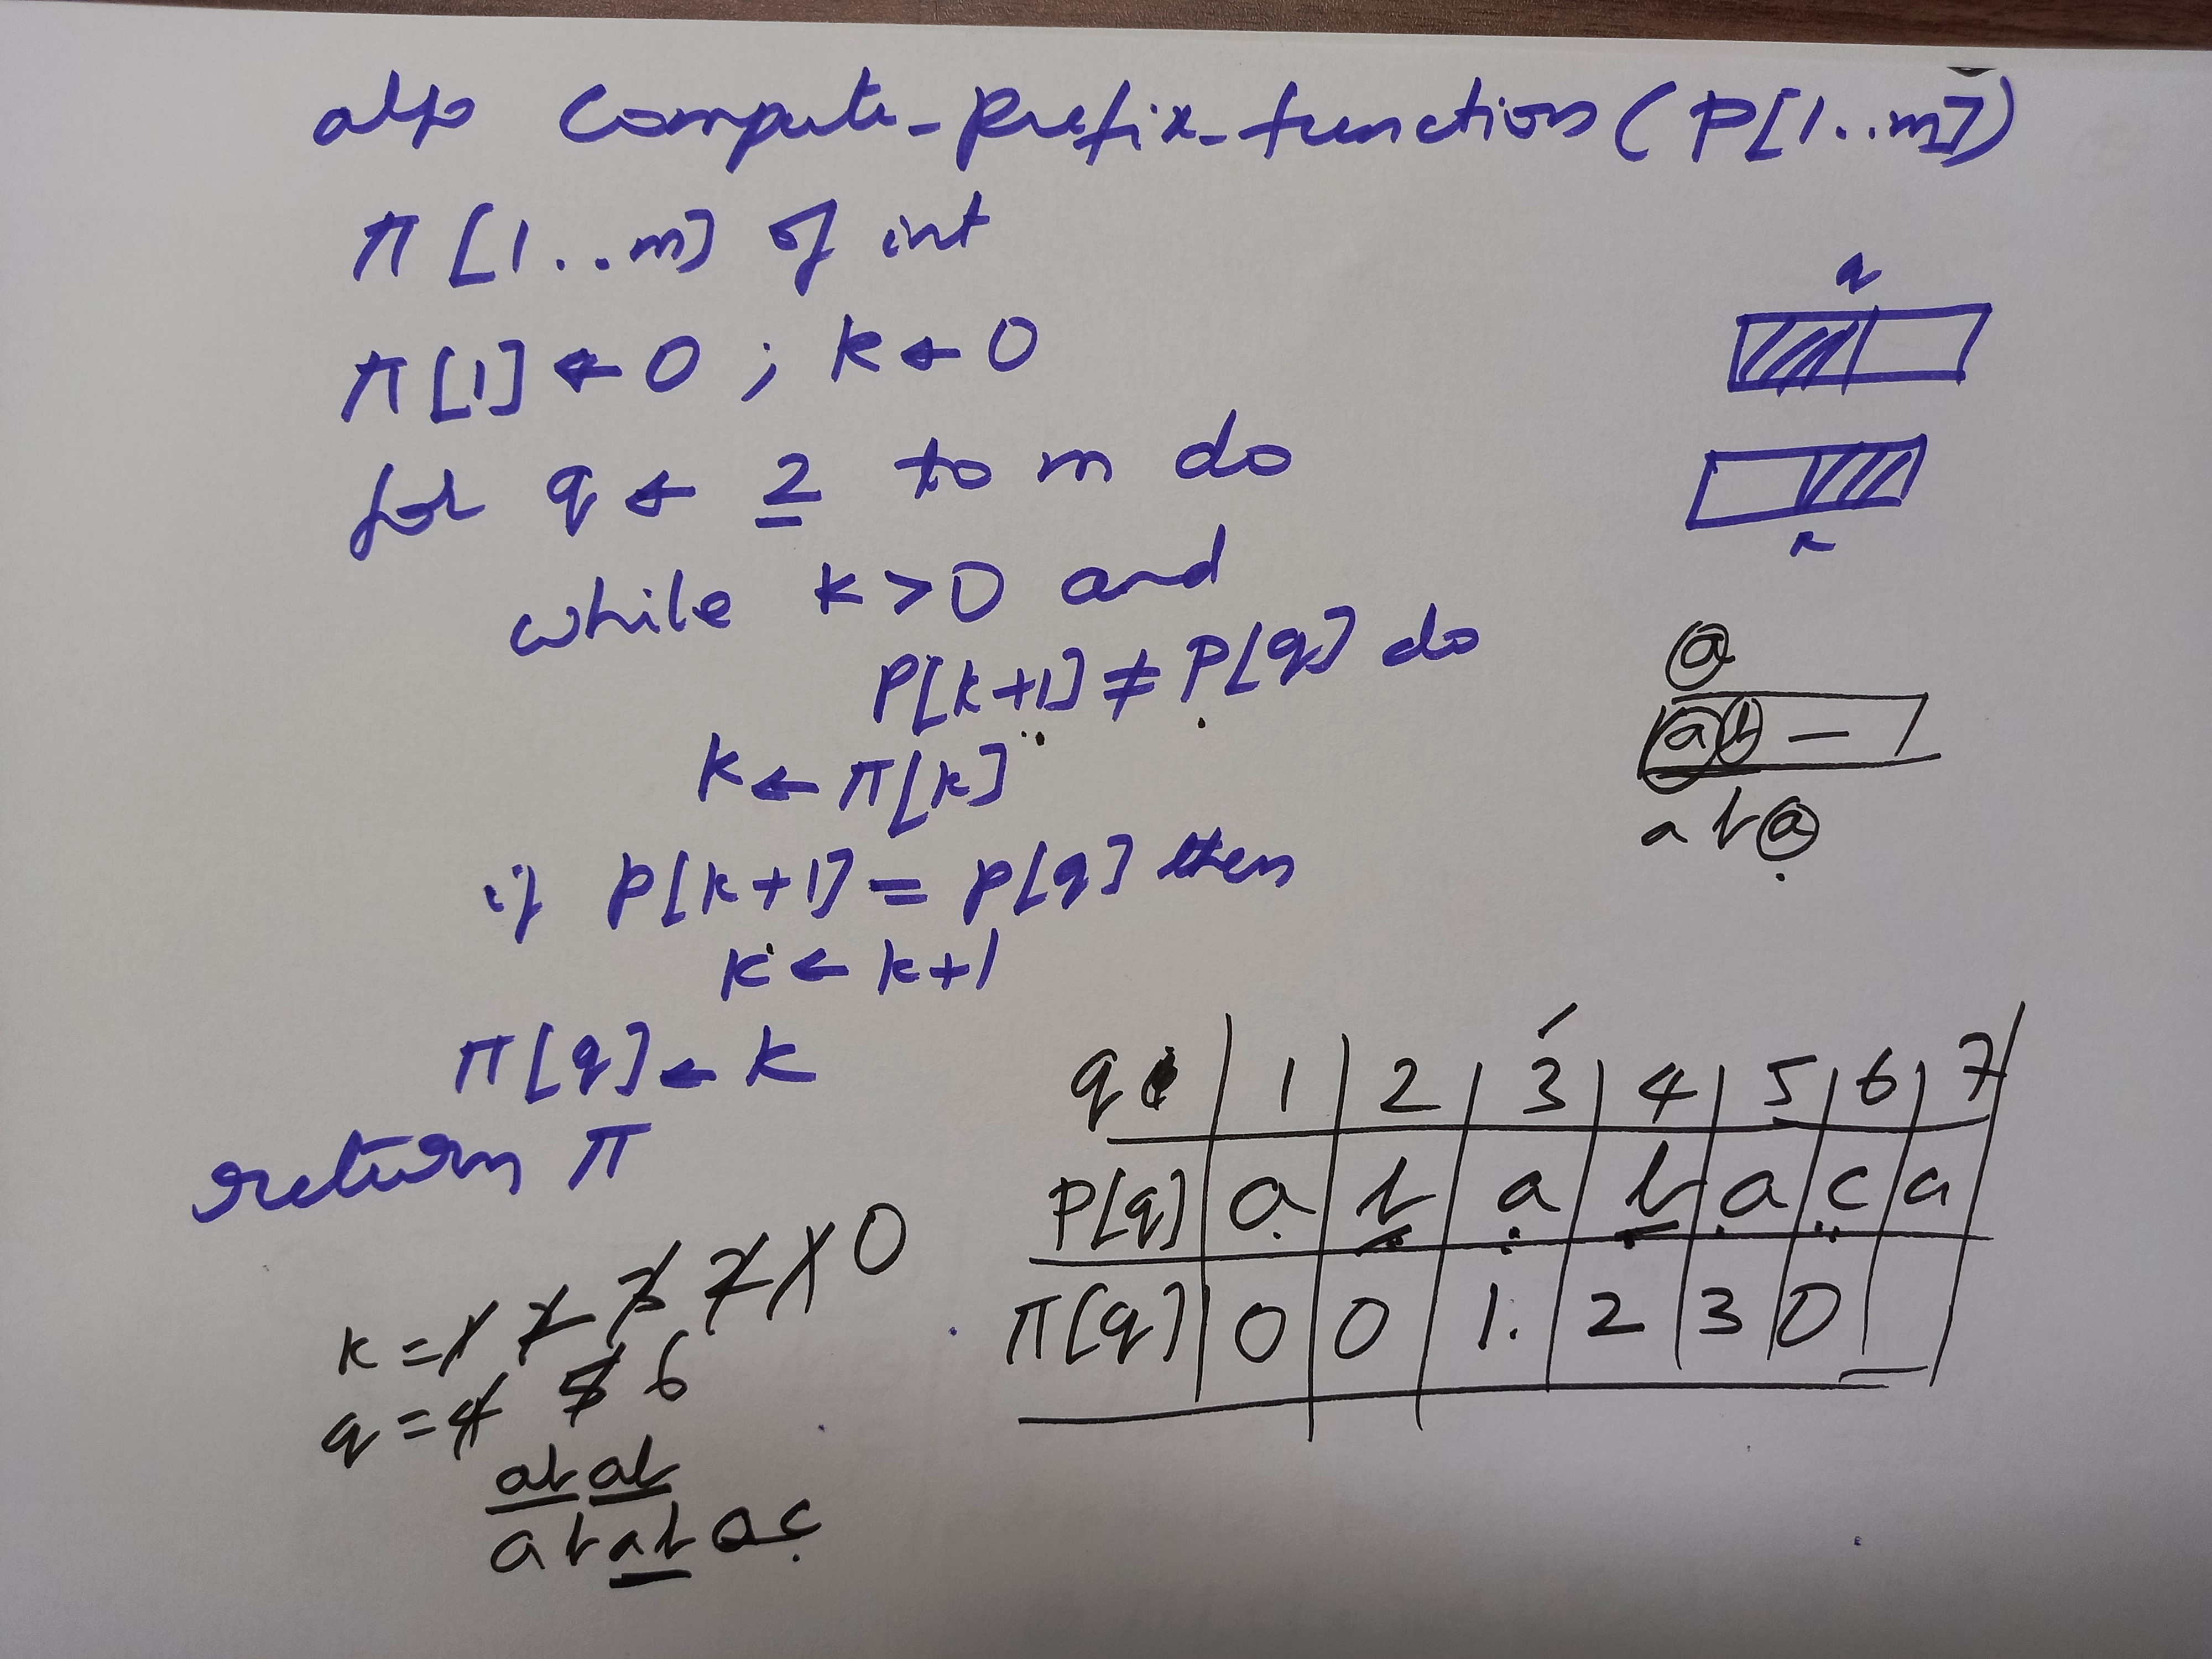 algo Compute-prefix-function(P[1..m])
π[1..m] of int
π[1] ← 0 ; k ← 0
for q ← 2 to m do
while k > 0 and
P[k+1] ≠ P[q] do
k ← π[k]
if P[k+1] = P[q] then
k ← k+1
π[q] ← k
return π
q
k
a
ab –
a b a
q 1 2 3 4 5 6 7
P[q] a b a b a c a
π[q] 0 0 1 2 3 0
k = 1 2 3 2 1 0
q = 4 5 6
abab
ababac